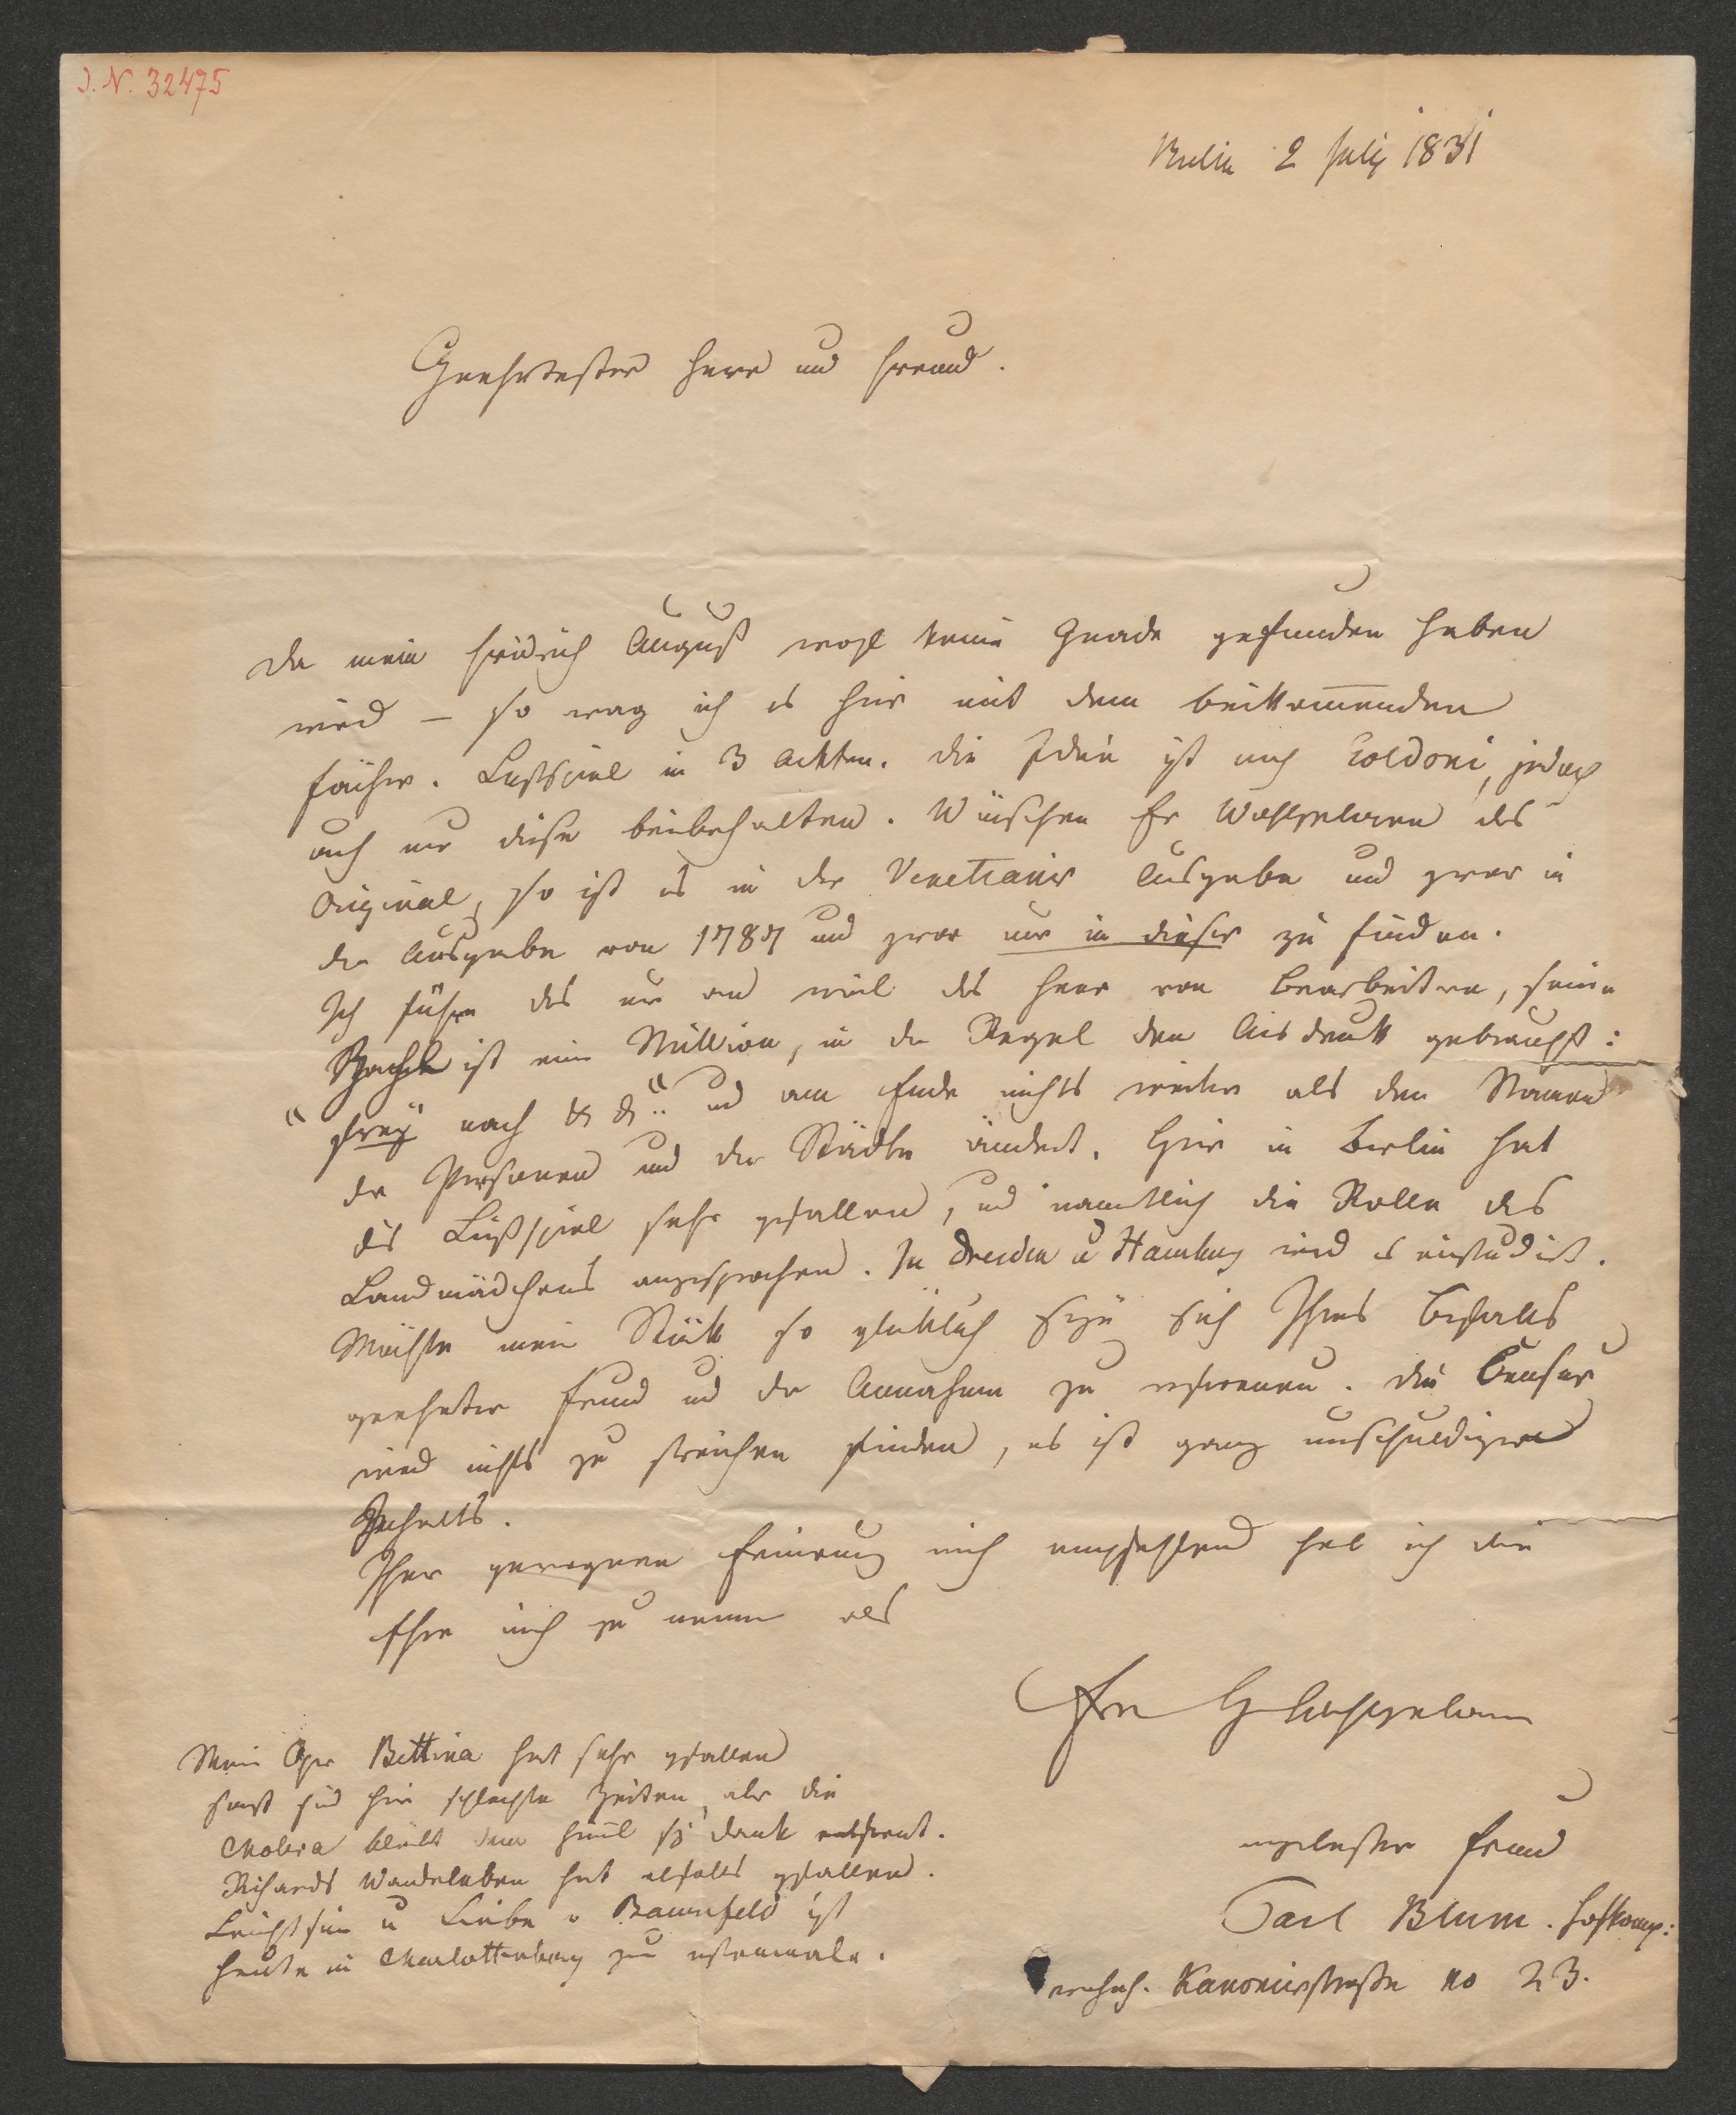 J. N. 32475
Berlin 2 July 1831
Geehrtester Herr und Freund.
Da mein Fridrich August wohl keine Gnade gefunden haben
wird – so wag ich es hier mit dem beikommenden
Fächer. Lustspiel in 3 Akten. Die Idee ist nach Goldoni, jedoch
auch nur diese beibehalten. Wünschen Ew Wohlgeboren das
Original, so ist es in der Venetianer Ausgabe und zwar in
der Ausgabe von 1787 und zwar nur in dieser zu finden.
Ich führe das nur an weil das Heer von Bearbeitern, seine
ist eine Million, in der Regel den Ausdruck gebraucht:
"frey nach" und am Ende nichts weiter als den Namen
der Personen und der Städte ändert. Hier in Berlin hat
das Lustspiel sehr gefallen, und namentlich die Rolle des
Landmädchens angesprochen. In Dresden u Hamburg wird es einstudirt.
Möchte mein Stück so glücklich seyn sich Ihres Beifalls
geehrter Freund und der Annahme zu erfreuen. Die Censur
wird nichts zu streichen finden, es ist ganz unschuldigen
Inhalts.
Ihrer gewogenen Erinnrung mich empfehlend hab ich die
Ehre mich zu nennen als
Euer Hochwohlgeboren
Meine Oper Bettina hat sehr gefallen
sonst sind hier schlechte Zeiten, aber die
Cholera bleibt dem Himmel sei Dank entfernt.
Richards Wanderleben hat ebfalls gefallen.
Leichtsinn u Liebe v Bauernfeld ist
heute in Charlottenburg zum erstenmale.
ergebenster Freund
Carl Blum. Hofkomp:
wohnh. Kanonierstraße no 23.